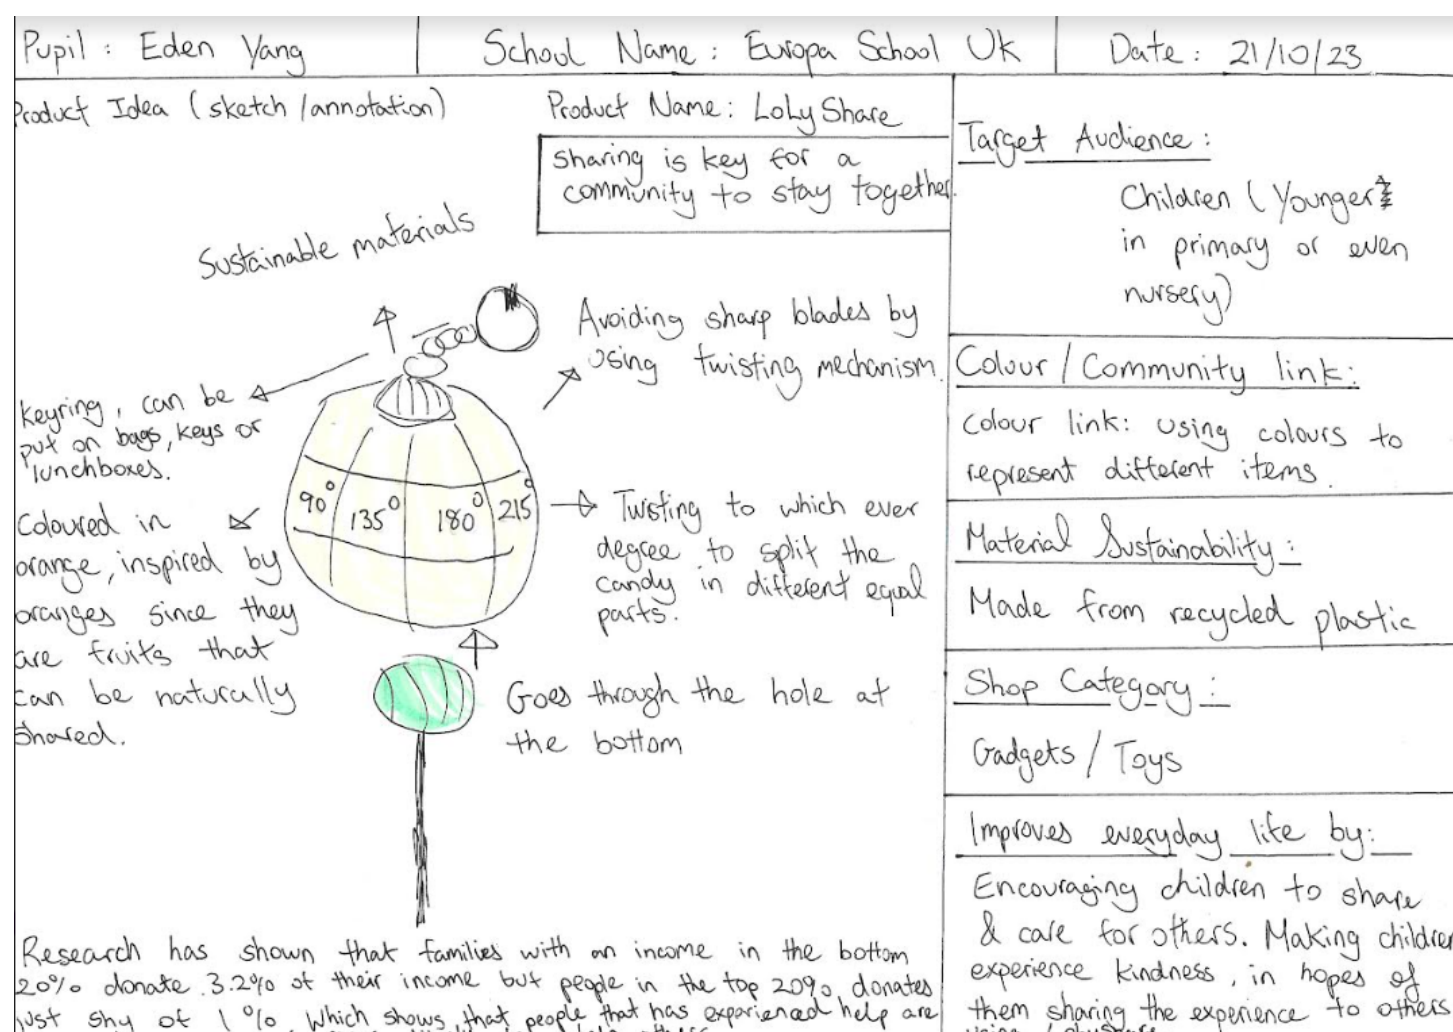 Pupil : Eden Yang
School Name : Europa School UK
Date : 21/10/23
Product Idea (sketch / annotation)
Product Name : LolyShare
Sharing is key for a
community to stay together.
Sustainable materials
Avoiding sharp blades by
using twisting mechanism.
Keyring, can be
put on bags, keys or
lunchboxes.
90° 135° 180° 215°
Twisting to which ever
degree to split the
candy in different equal
parts.
Coloured in
orange, inspired by
oranges since they
are fruits that
can be naturally
shared.
Goes through the hole at
the bottom
Research has shown that families with an income in the bottom
20% donate 3.2% of their income but people in the top 20% donates
just shy of 1%. Which shows that people that has experienced help are
Target Audience :
Children (Younger
in primary or even
nursery)
Colour / Community link :
Colour link : using colours to
represent different items.
Material Sustainability :
Made from recycled plastic
Shop Category :
Gadgets / Toys
Improves everyday life by :
Encouraging children to share
& care for others. Making children
experience kindness, in hopes of
them sharing the experience to others